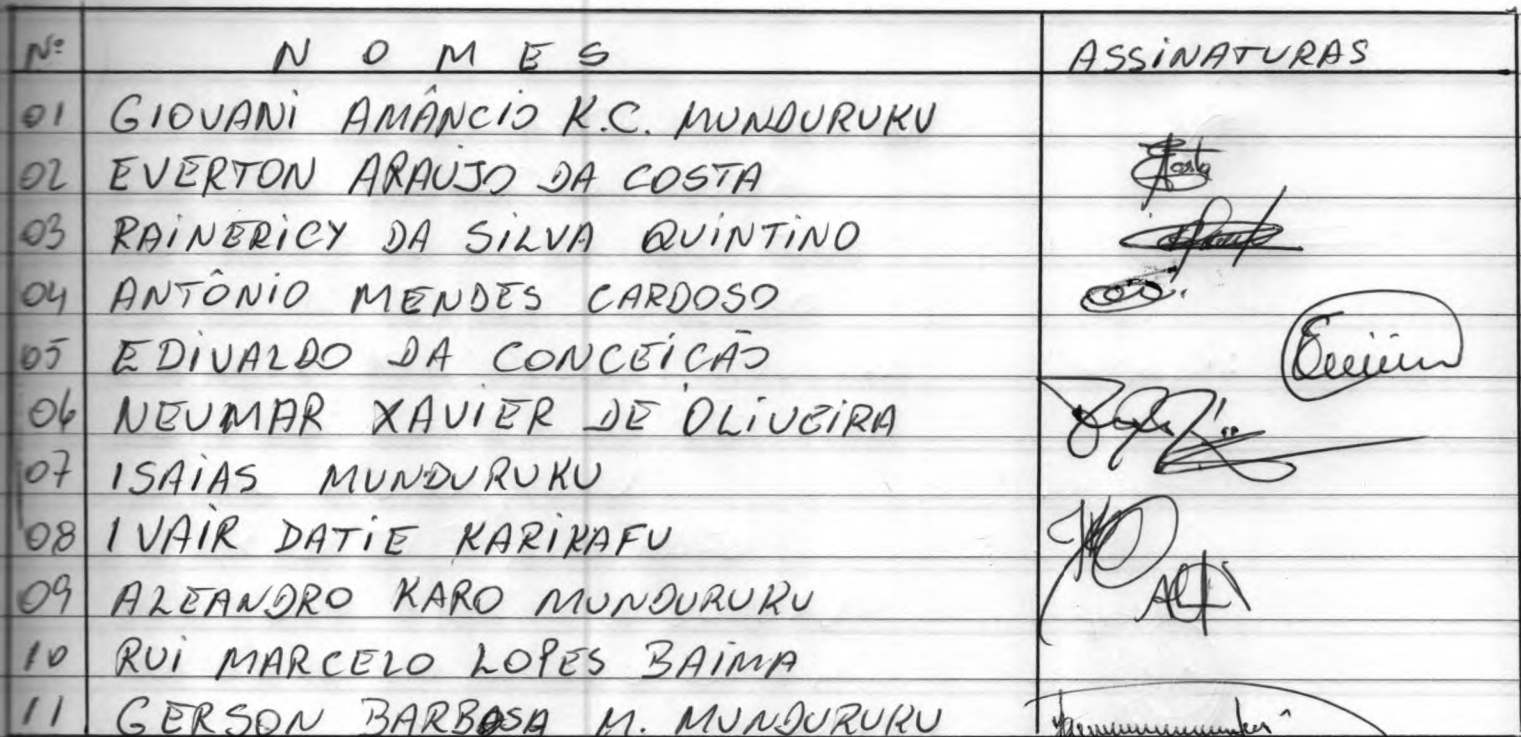 Nº N O M E S ASSINATURAS
01 GIOVANI AMÂNCIO K.C. MUNDURUKU
02 EVERTON ARAUJO DA COSTA
03 RAINERICY DA SILVA QUINTINO
04 ANTÔNIO MENDES CARDOSO
05 EDIVALDO DA CONCEICÃO
06 NEUMAR XAVIER DE OLIVEIRA
07 ISAIAS MUNDURUKU
08 IVAIR DATIE KARIKAFU
09 ALEANDRO KARO MUNDURUKU
10 RUI MARCELO LOPES BAIMA
11 GERSON BARBOSA M. MUNDURUKU